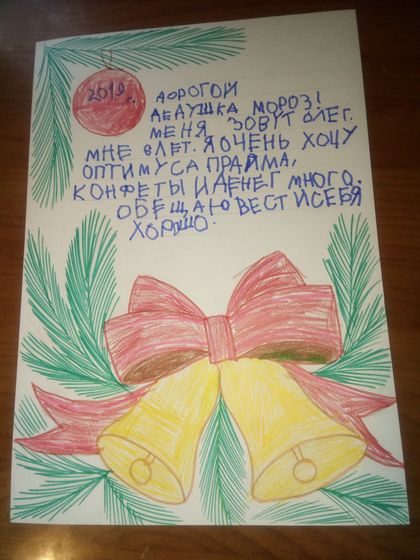 2019 г.
ДОРОГОЙ
ДЕДУШКА МОРОЗ!
МЕНЯ ЗОВУТ ОЛЕГ.
МНЕ 6 ЛЕТ. Я ОЧЕНЬ ХОЧУ
ОПТИМУСА ПРАЙМА,
КОНФЕТЫ И ДЕНЕГ МНОГО.
ОБЕЩАЮ ВЕСТИ СЕБЯ
ХОРОШО.